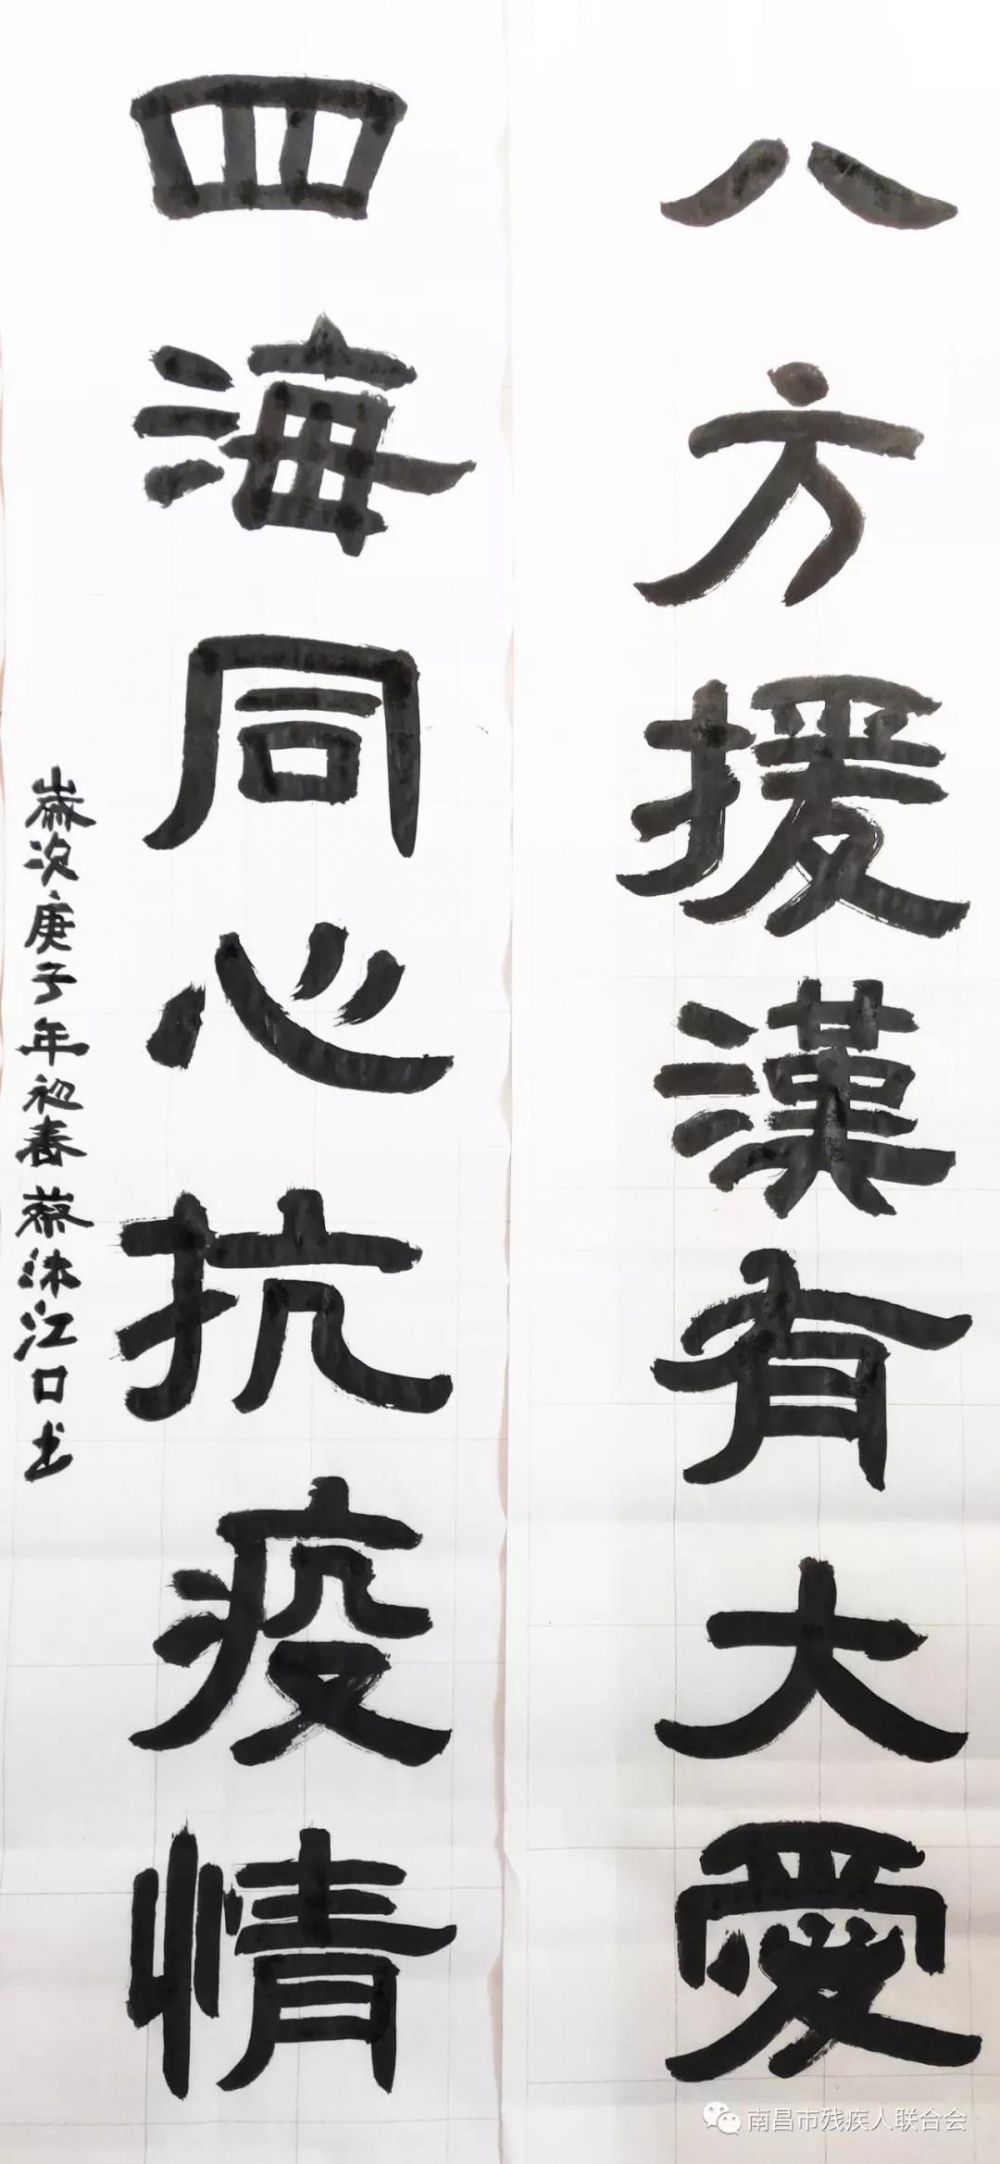 八方援漢有大愛
四海同心抗疫情
歲次庚子年初春蔡沐江口书
南昌市残疾人联合会